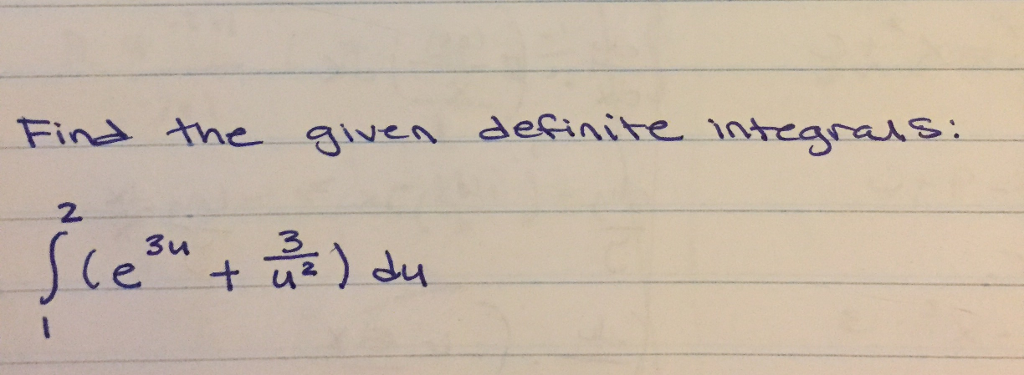 Find the given definite integrals:
∫₁² (e³ᵘ + 3/u²) du